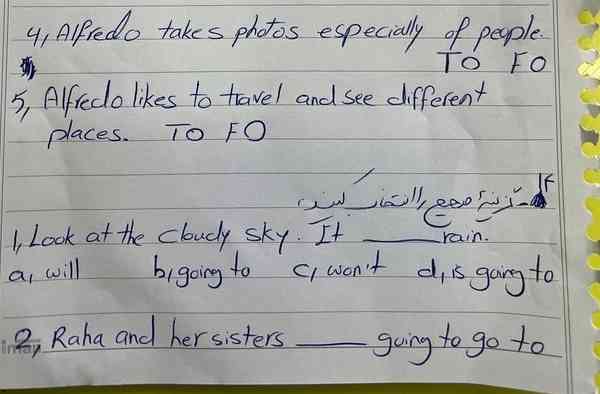 4, Alfredo takes photos especially of people.
TO FO
5, Alfredo likes to travel and see different
places. TO FO
گزینهٔ صحیح را انتخاب کنید.
1, Look at the cloudy sky. It ____ rain.
a, will b, going to c, won't d, is going to
2, Raha and her sisters ____ going to go to